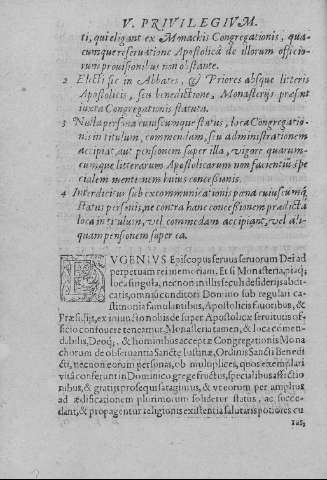 V. PRIVILEGIVM.
ti, qui eligant ex Monachis Congregationis, qua-
cumque reseruatione Apostolica de illorum officio-
rum prouisionibus non obstante.
2 Electi sic in Abbates, & Priores absque litteris
Apostolicis, seu benedictione, Monasterijs præsint
iuxta Congregationis statuta.
3 Nulla persona cuiuscunque status, loca Congregatio-
nis in titulum, commendam, seu administrationem
accipiat aut pensionem super illa, vigore quarum-
cumque litterarum Apostolicarum non facientiũ spe
cialem mentionem huius concessionis.
4 Interdicitur sub excommunicationis pœna cuiuscumq́;
status personis, ne contra hanc concessionem prædicta
loca in titulum, vel commedam accipiant, vel ali-
quam pensionem super ea.
EVGENIVS Episcopus seruus seruorum Dei ad
perpetuam rei memoriam. Et si Monasteria, piaq́;
loca singula, necnon in illis seculi desiderijs abdi-
catis, omniũ conditori Domino sub regulari ca-
stimonia famulantibus, Apostolicis fauoribus, &
Præsidijs, ex iniuncto nobis desuper Apostolicæ seruitutis of-
ficio confouere teneamur. Monasteria tamen, & loca comen-
dabilia, Deoq́;, & hominibus accepta Congregationis Mona
chorum de obseruantia Sanctę Iustinæ, Ordinis Sancti Bened
cti, necnon eorum personas, ob multiplices, quos exemplari
vita conferunt in Dominico grege fructus, specialibus affectio
nibus, & gratijs prosequi satagimus, & vt eorum per amplius
ad ædificationem plurimorum solidetur status, ac succe-
dant, & propagentur religionis existentia salutaris potiores cu